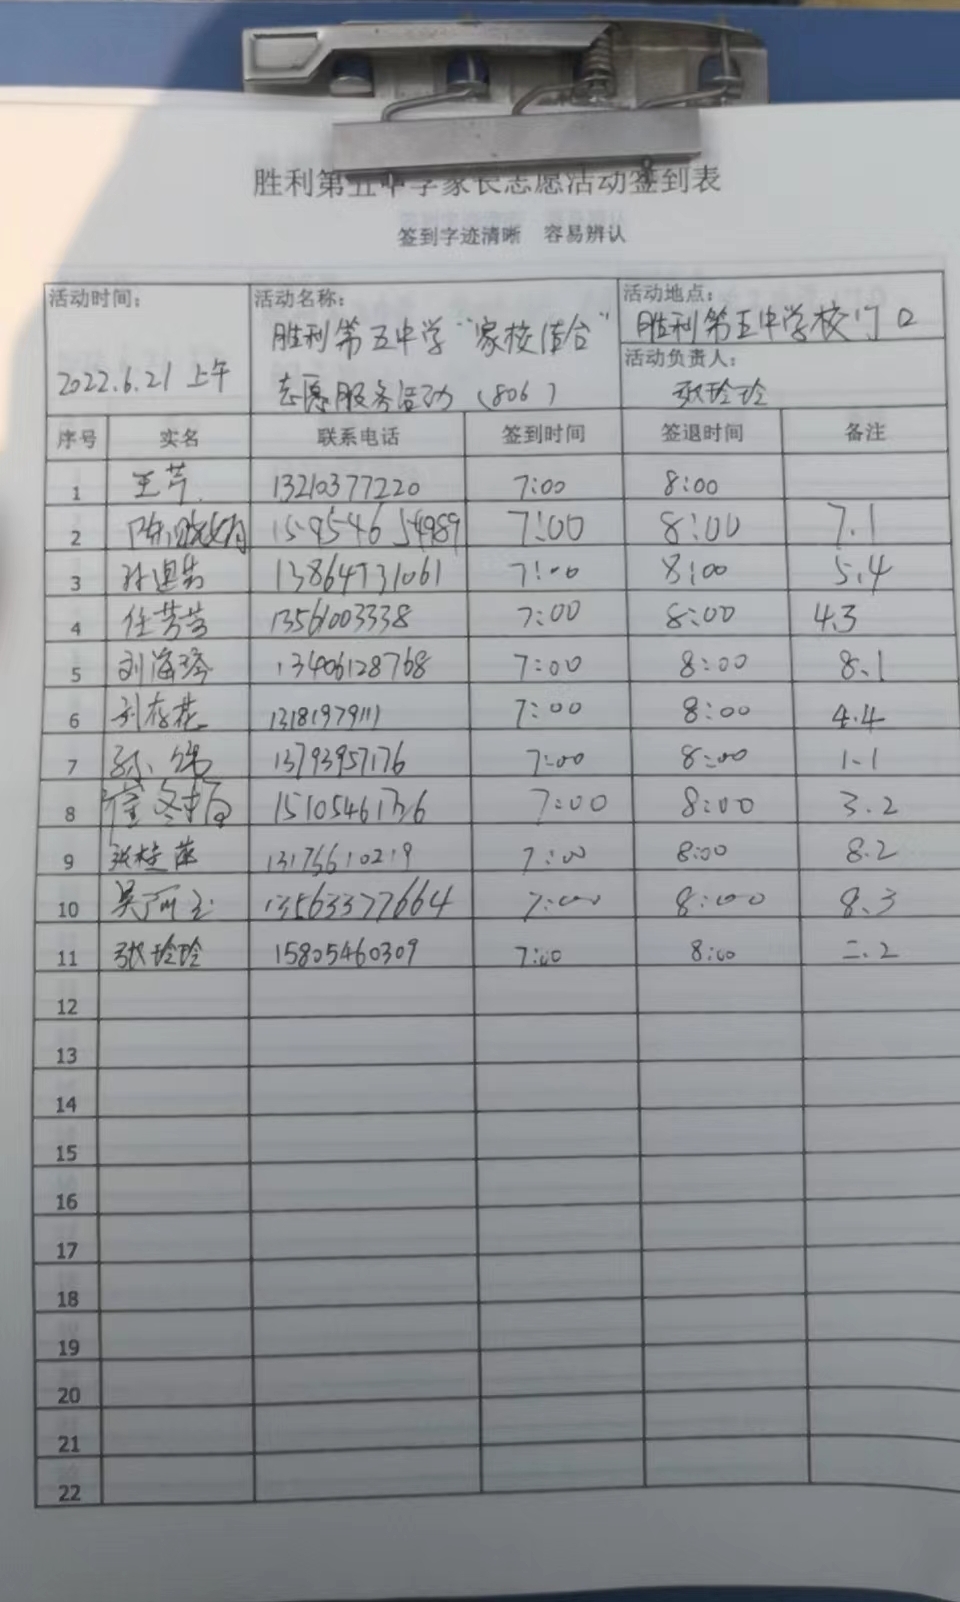 胜利第五中学家长志愿活动签到表
签到字迹清晰 容易辨认
活动时间: 2022.6.21 上午
活动名称: 胜利第五中学“家校结合”
志愿服务活动(806)
活动地点: 胜利第五中学校门口
活动负责人: 张玲玲
序号 实名 联系电话 签到时间 签退时间 备注
1 王芹 13210377220 7:00 8:00
2 陈晓娟 15954654989 7:00 8:00 7.1
3 13864731061 7:00 8:00 5.4
4 任芳芳 13561003338 7:00 8:00 4.3
5 刘海琴 13406128768 7:00 8:00 8.1
6 刘存花 13181979111 7:00 8:00 4.4
7 孙 13793957176 7:00 8:00 1.1
8 崔冬梅 7:00 8:00 3.2
9 张桂萍 13176610219 7:00 8:00 8.2
10 吴丽玉 13563377664 7:00 8:00 8.3
11 张玲玲 15805460309 7:00 8:00 二.2
12
13
14
15
16
17
18
19
20
21
22